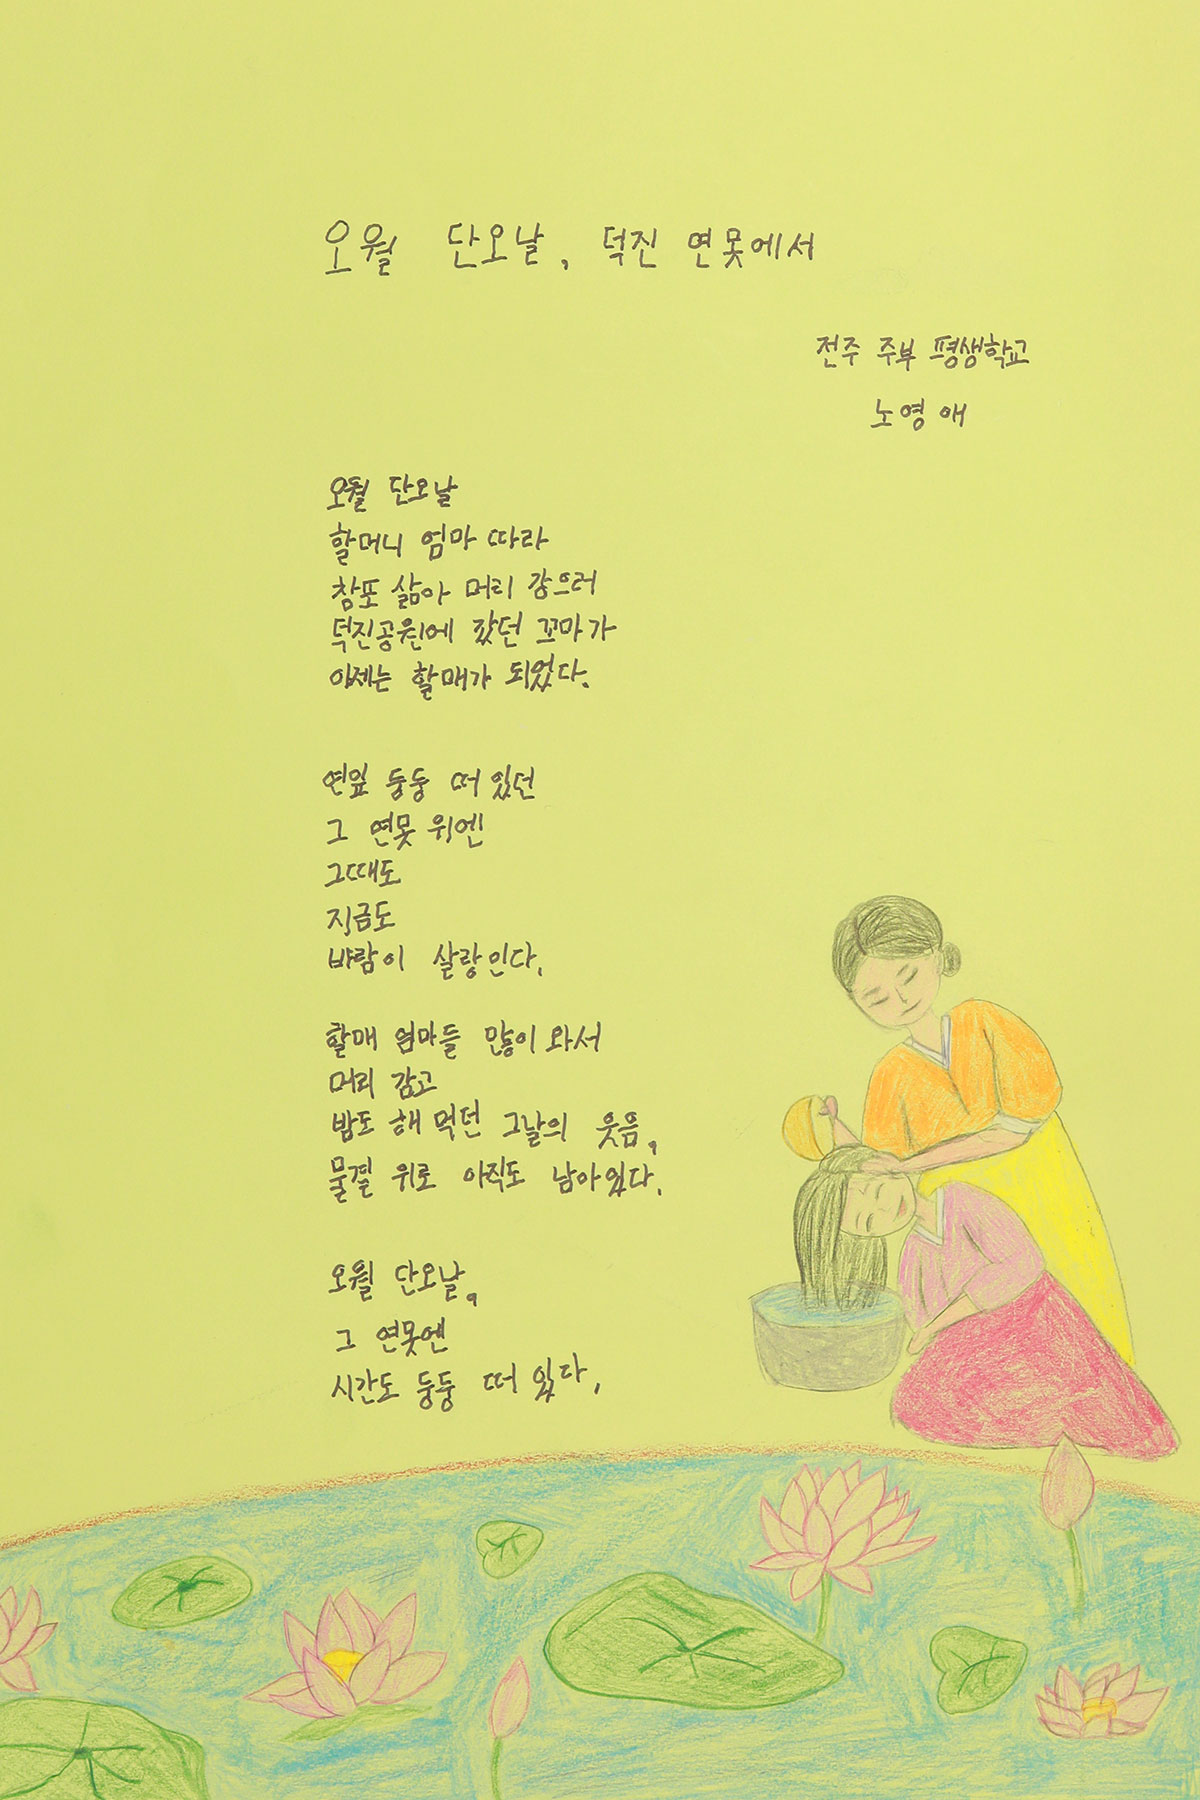 오월 단오날, 덕진 연못에서
전주 주부 평생학교
노영애
오월 단오날
할머니 엄마 따라
창포 삶아 머리 감으러
덕진공원에 갔던 꼬마가
이제는 할매가 되었다.
연잎 둥둥 떠 있던
그 연못 위엔
그때도
지금도
바람이 살랑인다.
할매 엄마들 많이 와서
머리 감고
밥도 해 먹던 그날의 웃음,
물결 위로 아직도 남아있다.
오월 단오날,
그 연못엔
시간도 둥둥 떠 있다.